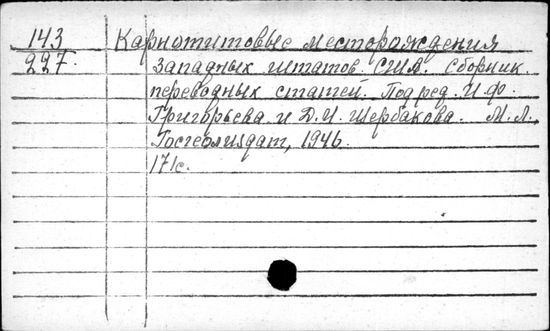 143 Карнотитовые месторождения
227. западных штатов США. Сборник
переводных статей. Под ред. И.Ф.
Григорьева и Д.И. Щербакова. М.Л.,
Госгеолиздат, 1946.
171с.